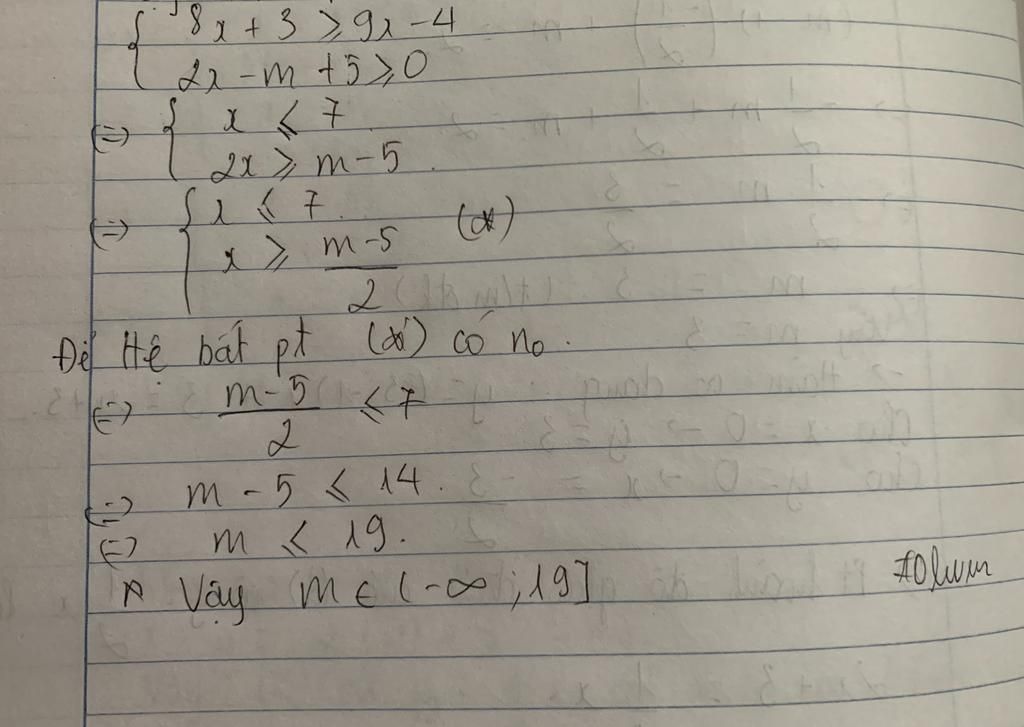 { 8x + 3 ⩾ 9x - 4
2x - m + 5 ⩾ 0
(=) { x ⩽ 7
2x ⩾ m - 5.
(=) { x ⩽ 7. (*)
x ⩾ (m - 5)/2
Để Hệ bất pt (*) có no.
(=) (m - 5)/2 ⩽ 7
(=) m - 5 ⩽ 14.
(=) m ⩽ 19.
Vậy m ∈ (-∞; 19]